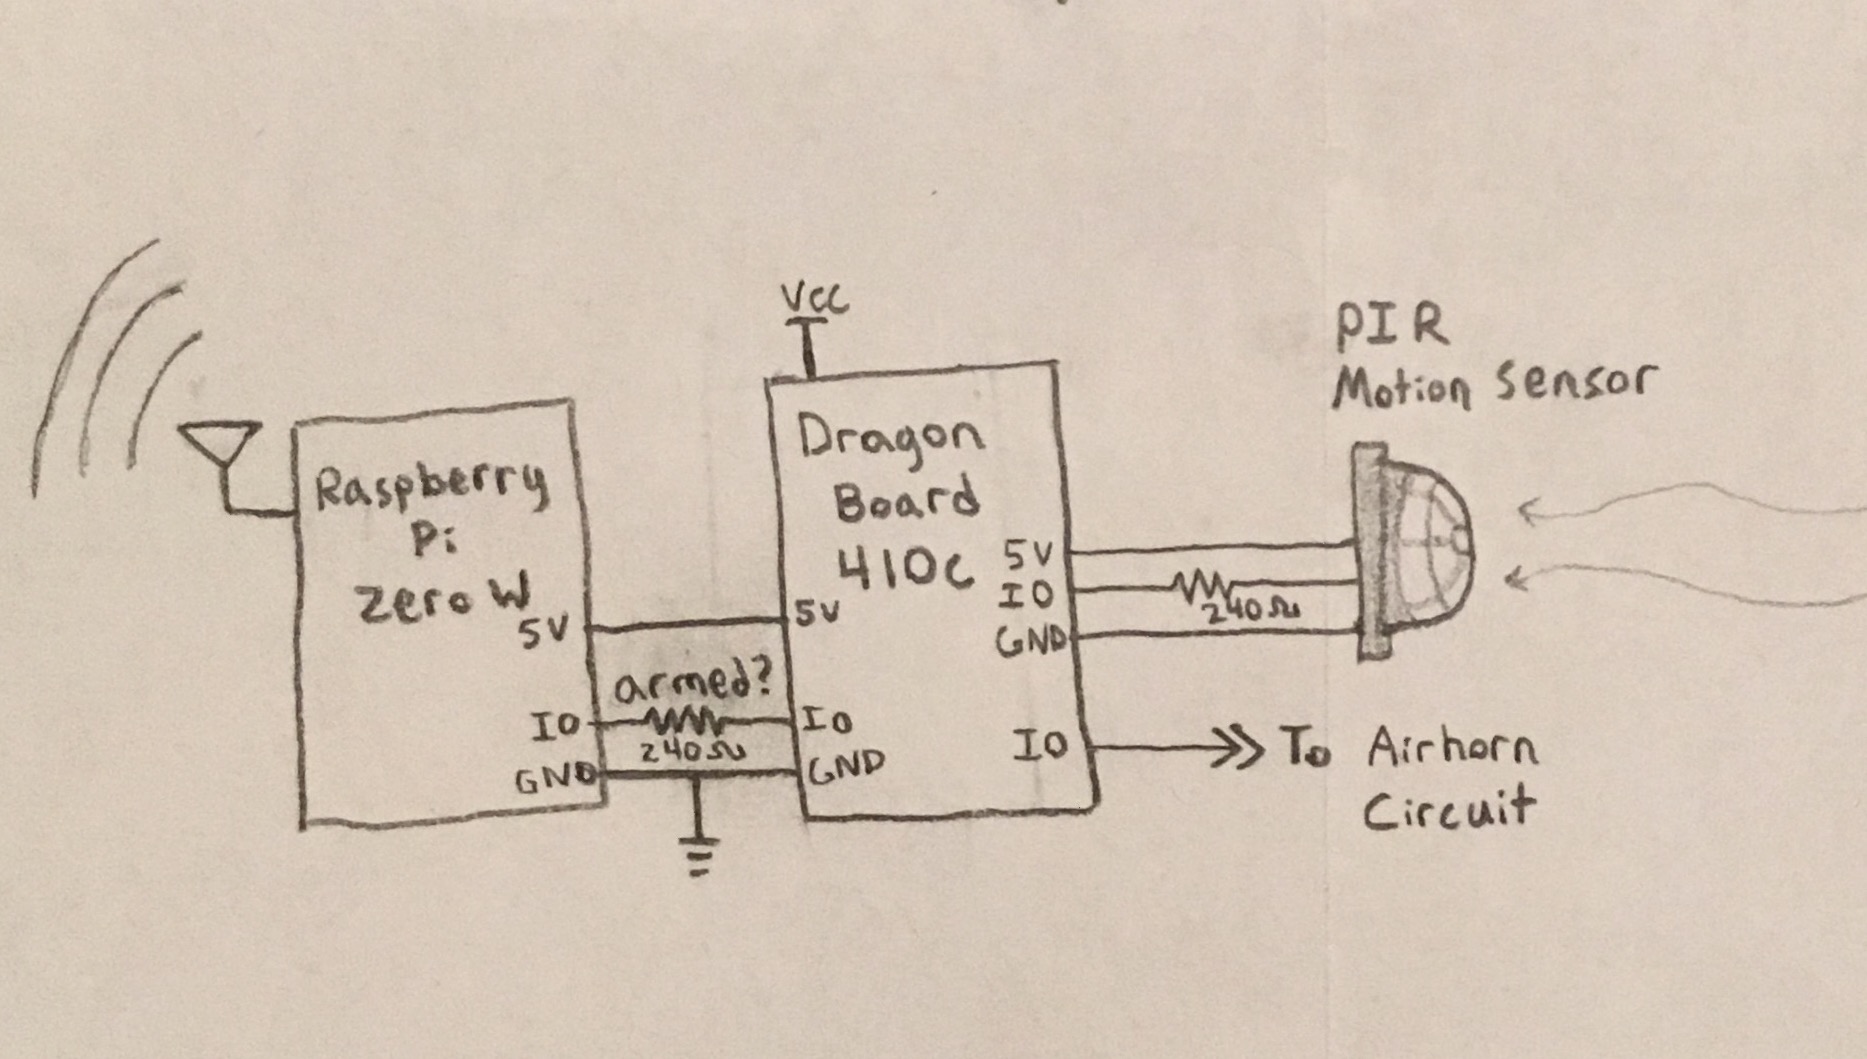 Vcc
PIR
Motion Sensor
Dragon
Board
410c
Raspberry
Pi
Zero W
5V
IO
GND
5V
5V
240Ω
240Ω
armed?
IO
IO
GND
GND
IO
To Airhorn
Circuit